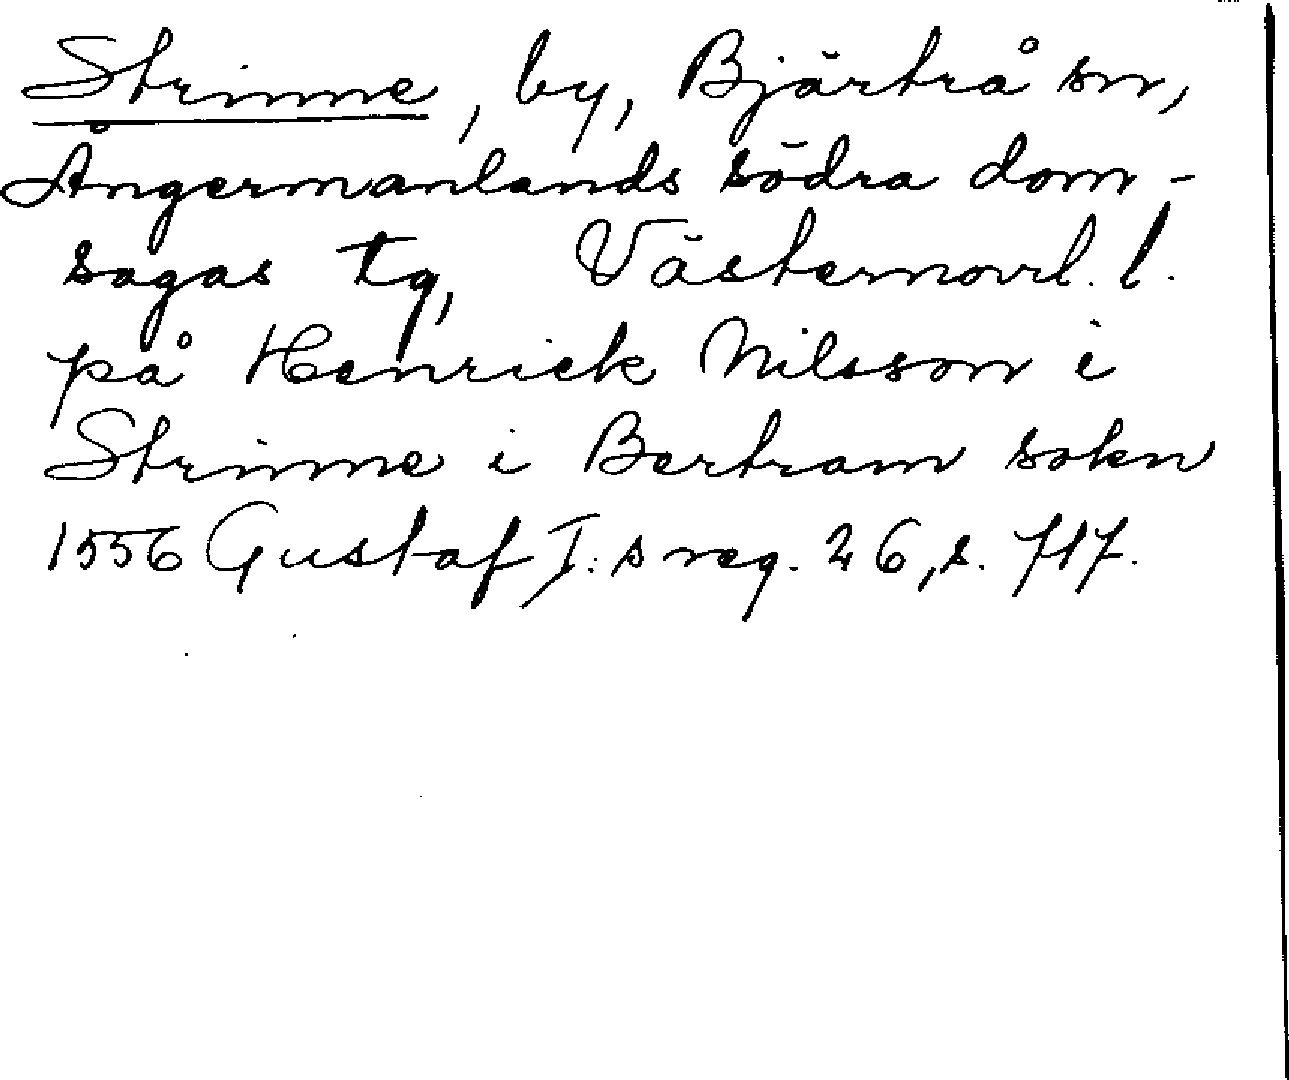 Strinne, by, Bjärtrå sn,
Ångermanlands södra dom-
sagas tg, Västernorrl. l.
på Henrick Nilsson i
Strinne i Bertram sokn
1556 Gustaf I:s reg. 26, s. 717.